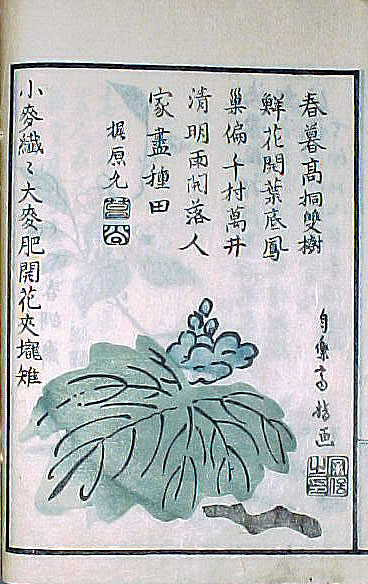 春暮髙桐雙樹
鮮花開葉底鳳
巢偏千村萬井
清明雨開落人
家盡種田
梶原九
小麥纖〻大麥肥開花夾壠雉